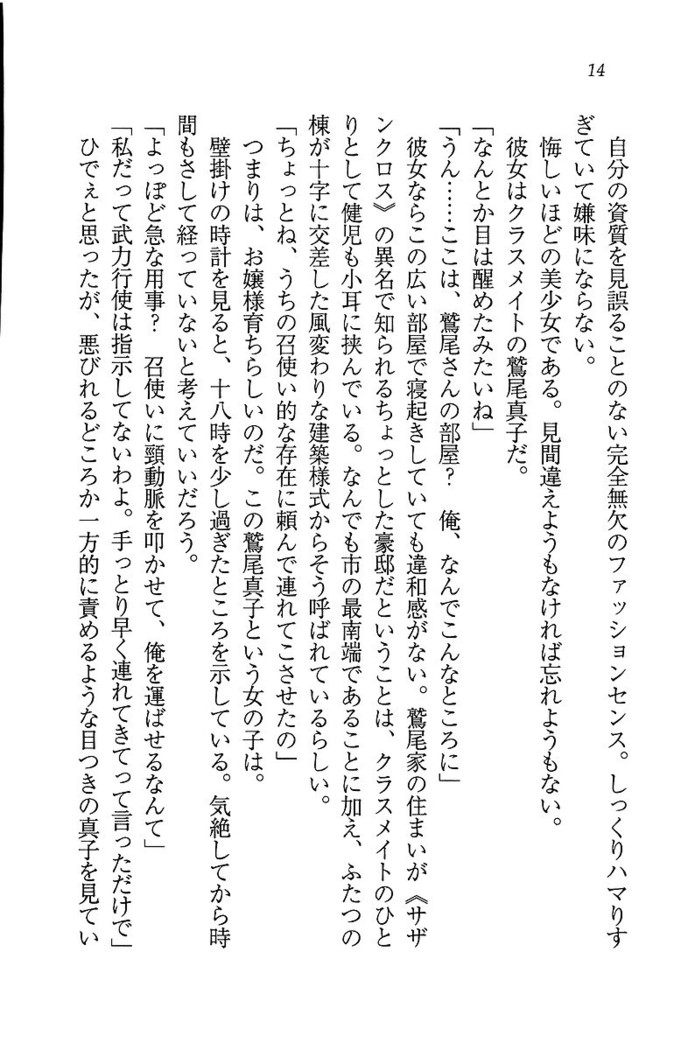 14
自分の資質を見誤ることのない完全無欠のファッションセンス。しっくりハマりす
ぎていて嫌味にならない。
悔しいほどの美少女である。見間違えようもなければ忘れようもない。
彼女はクラスメイトの鷲尾真子だ。
「なんとか目は醒めたみたいね」
「うん……ここは、鷲尾さんの部屋？　俺、なんでこんなところに」
彼女ならこの広い部屋で寝起きしていても違和感がない。鷲尾家の住まいが《サザ
ンクロス》の異名で知られるちょっとした豪邸だということは、クラスメイトのひと
りとして健児も小耳に挟んでいる。なんでも市の最南端であることに加え、ふたつの
棟が十字に交差した風変わりな建築様式からそう呼ばれているらしい。
「ちょっとね、うちの召使い的な存在に頼んで連れてこさせたの」
つまりは、お嬢様育ちらしいのだ。この鷲尾真子という女の子は。
壁掛けの時計を見ると、十八時を少し過ぎたところを示している。気絶してから時
間もさして経っていないと考えていいだろう。
「よっぽど急な用事？　召使いに頸動脈を叩かせて、俺を運ばせるなんて」
「私だって武力行使は指示してないわよ。手っとり早く連れてきてって言っただけで」
ひでぇと思ったが、悪びれるどころか一方的に責めるような目つきの真子を見てい